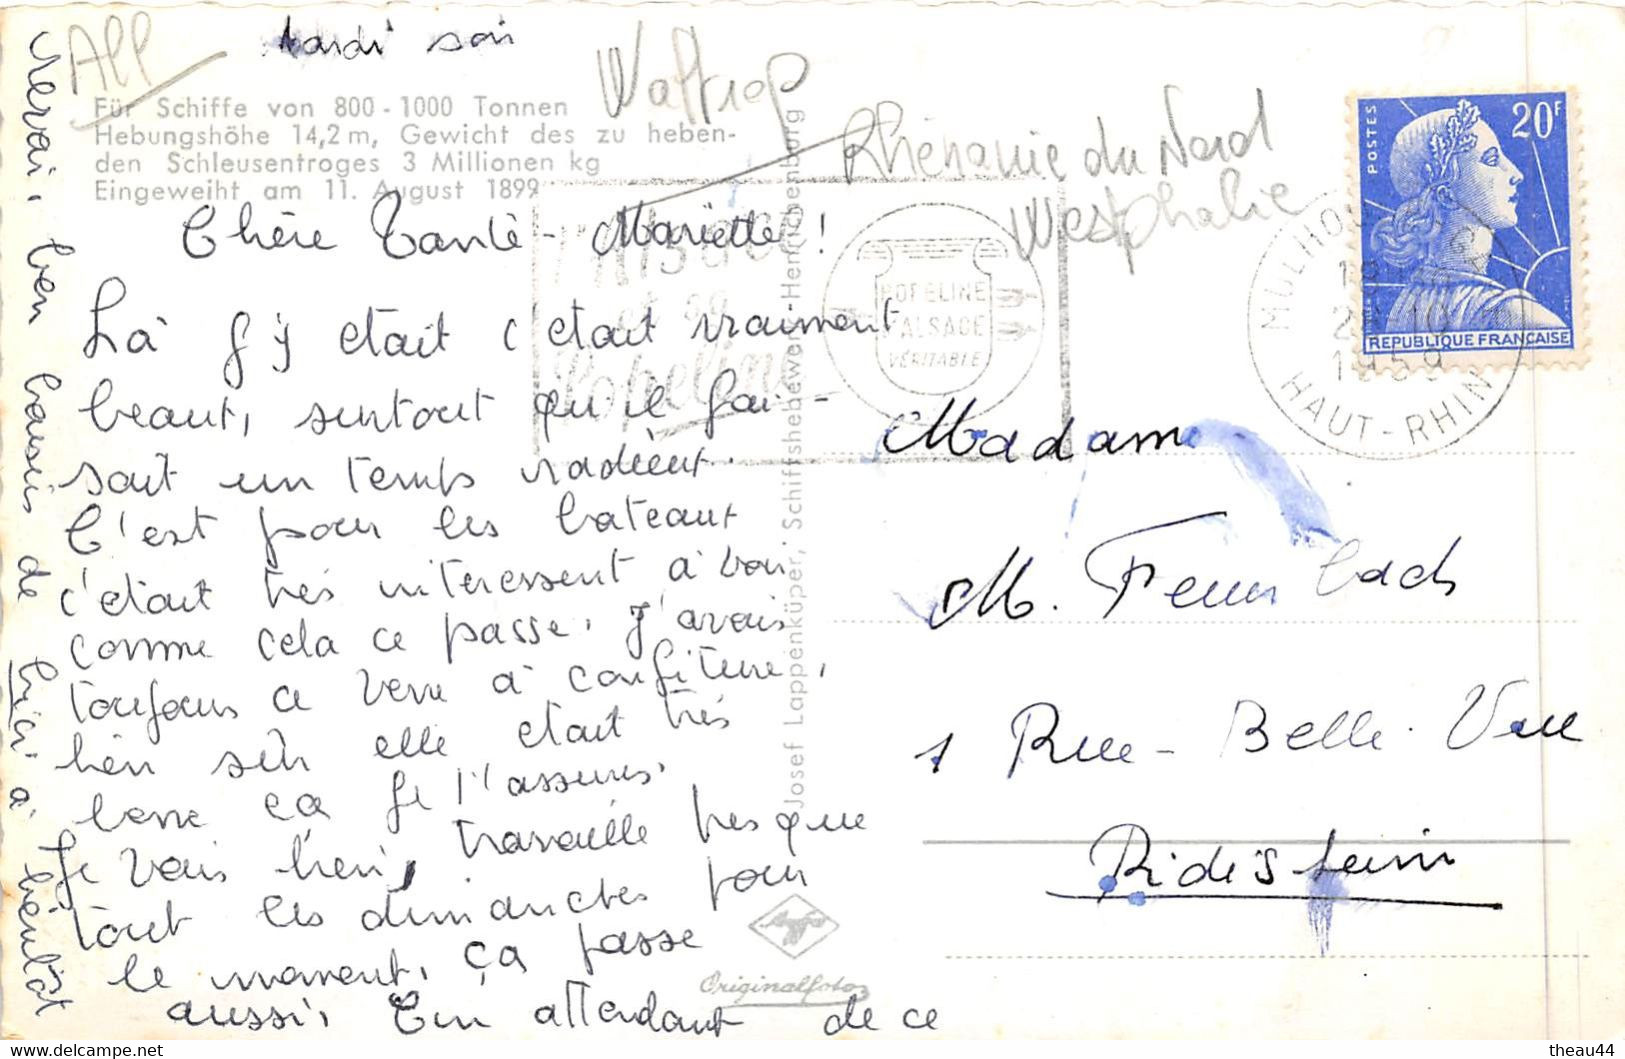 All
Mardi soir
Waltrop
Rhénanie du Nord
Westphalie
Für Schiffe von 800 - 1000 Tonnen
Hebungshöhe 14,2 m, Gewicht des zu heben-
den Schleusentroges 3 Millionen kg
Eingeweiht am 11. August 1899
Chère Tante - Mariette!
Là j'y etait c'etait vraiment
beaut, surtout qu'il fai-
sait un temps radient.
C'est pour les bateaut
c'etait très interessent à voir
comme cela ce passe. J'avais
toujours ce verre à confiture,
bien sûr elle etait très
bonne ça je t'assures.
Je vais bien, travaille presque
tout les dimanches pour
le moment, ça passe
aussi, En attendant de ce
revoir, bon baisers de bici à bientôt
Josef Lappenküper, Schiffshebewerk-Henrichenburg
Originalfoto
POPELINE
D'ALSACE
VÉRITABLE
Popeline
MULHOUSE
1959
HAUT-RHIN
POSTES
20F
REPUBLIQUE FRANÇAISE
Madame
M.
1 Rue - Belle - Vue
Ridisheim
theau44